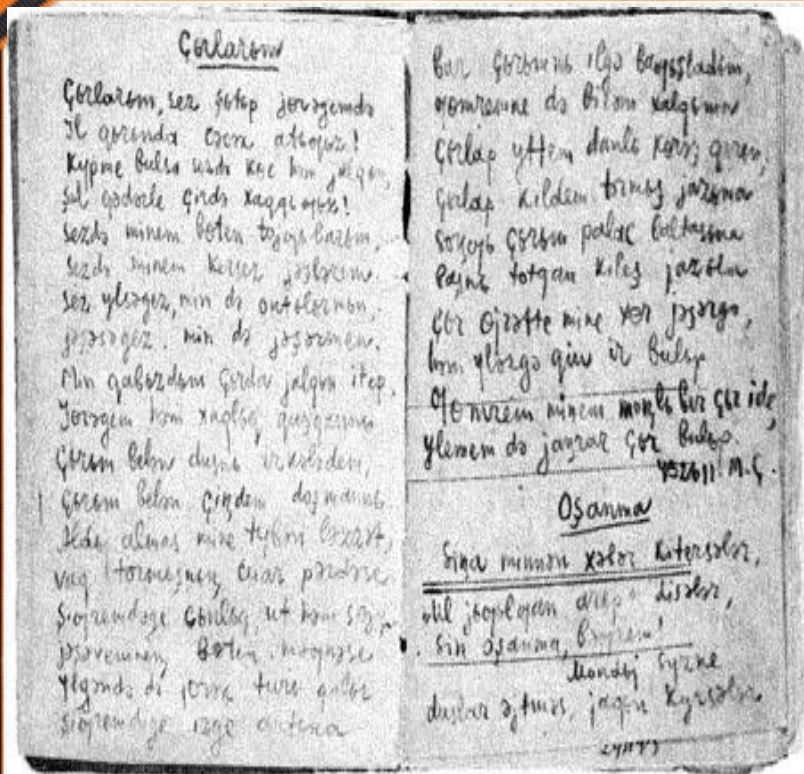 Çьrlarьm
Çьrlarьm, sez şьtьp jɵrəgemdə
Il qьrьnda cəcək atьƣьz!
Kypme bulsa sezdə kɵc həm jalqьn,
Şul qədərle çirdə xaqqьƣьz!
Sezdə minem bɵten tojƣьlarьm,
Sezdə minem kersez jəşlərem.
Sez ylsəgez, min də ontьlьrmьn,
jəşəsəgez, min də jəşərmen.
Min qabьzdьm çьrda jalqьn itep
Jɵrəgem həm xaqlьq quşqanьn.
Çьrьm belən dusnь irkələdem,
Çьrьm belən çiŋdem doşmannь.
Aldьj almas mine tybən ləzzət,
vaq tormьşnьŋ cuar pərdəse
Şiƣremdəge çьnlьq, ut həm sɵjy
jəşəvemneŋ bɵten məƣnəse
Ylgəndə də jɵrək turь qalьr
Şiƣremdəge izge antьna
Bar çьrьmnь ilgə baƣьşladьm,
ƣomremne də birəm xalqьma
Çьrlap yttem danlь kɵrəş qьrьn,
Çьrlap kildem tormьş jazьma
Soŋƣь çьrьm palac baltasьna
Başnь totqan kileş jazьla
Çьr ɵjrətte mine xɵr jəşərgə,
həm ylərgə qьju ir bulьp
Ƣomrem minem moŋlь ber çьr ide,
ylemem də jaŋrar çьr bulьp.
26 11 M.Ç.
Oşanma
Siŋa minnən xəbər kitersələr,
disələr,
Sin ьşanma, bəƣrem!
Mondьj syzne
duslar əjtməs, jaqьn kyrsələr